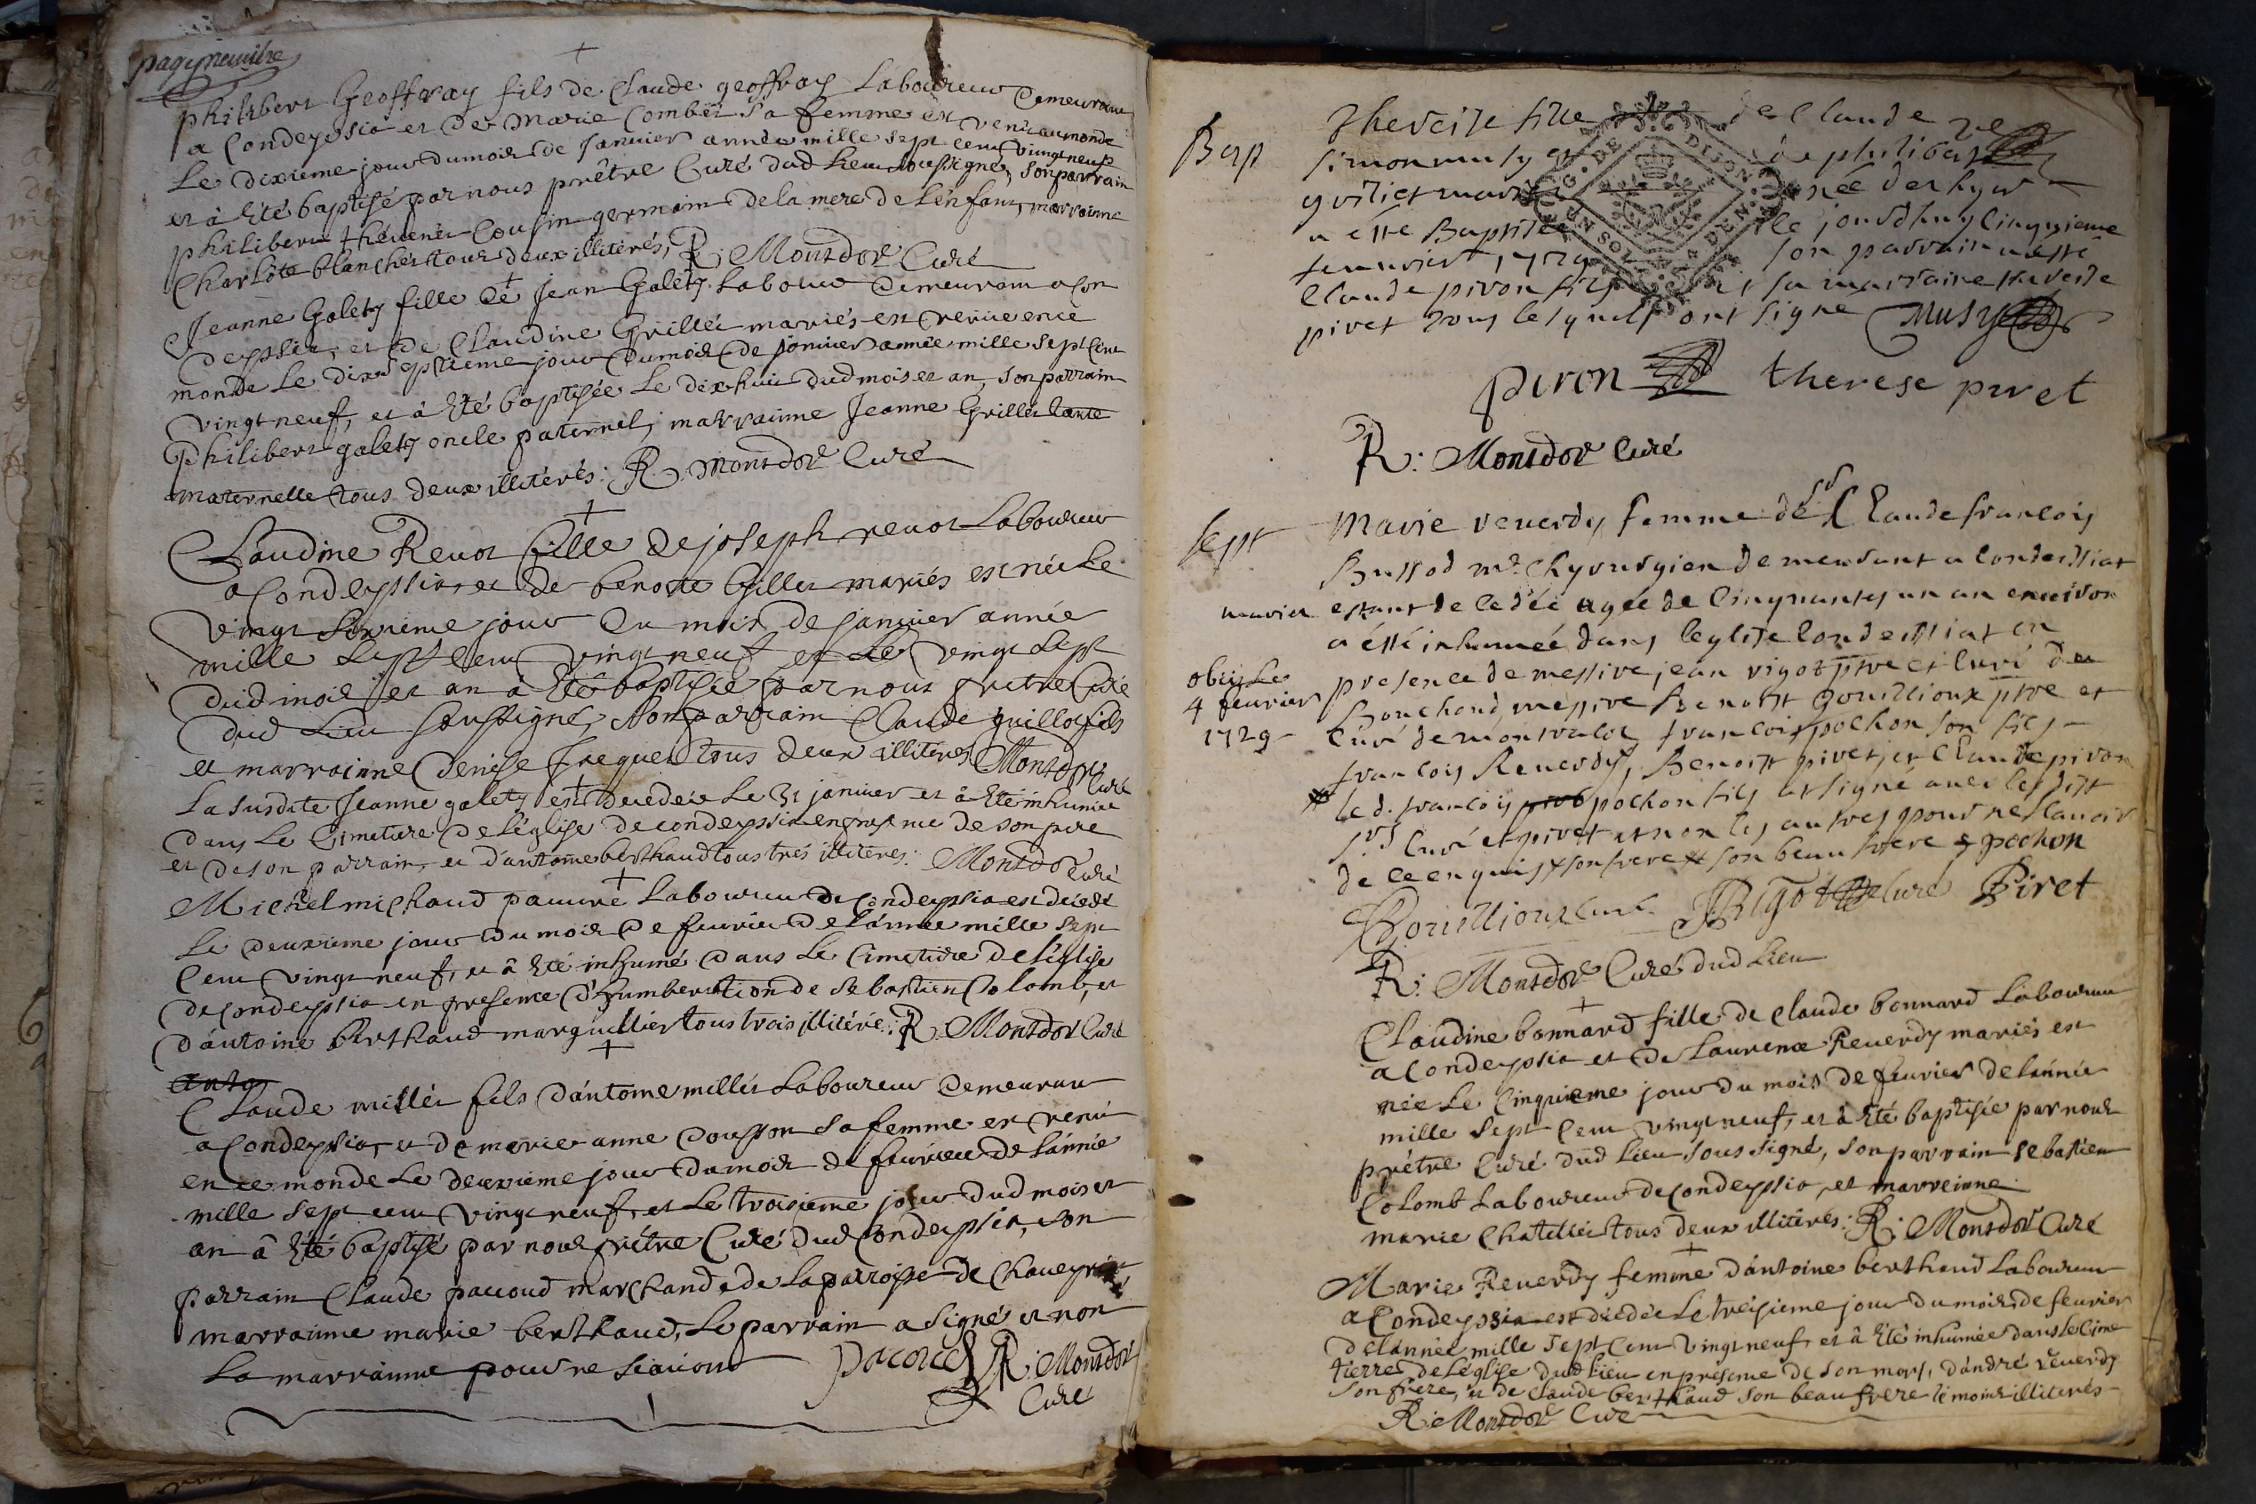 page premiere
philibert Geoffray fils de Claude geoffray Laboureur demeurant
a Condeyssia et de Marie Combet sa femme est venu au monde
Le dixieme jour du mois de Janvier année mille sept cent vingt neuf
et à èté baptisé par nous prêtre Curé dud Lieu soussigné, son parrain
philibert thévenet Cousin germain de la mere de L'enfant, marrainne
Charlote blanchet tous deux illiterés, R: Montdor Curé
Jeanne Galety fille de Jean Galety Laboureur demeurant a Con
deyssia, et de Claudine Grillet mariés est venue en ce
monde Le dix septieme jour du mois de janvier année mille sept Cent
vingt neuf, et à èté baptisée Le dix huit dud mois et an, son parrain
Philibert galety oncle paternel, marrainne Jeanne Grillet tante
maternelle tous deux illiterés: R. Montdor Curé
Claudine Revot fille de joseph revot Laboureur
a Condeyssia, et de benoite Gillet mariés est née Le
vingt sixieme jour du mois de janvier année
mille sept Cent vingt neuf et Le vingt sept
dud mois et an à èté baptisée par nous prêtre Curé
dud Lieu soussigné, son parrain Claude guillot fils
et marrainne Denise frequet tous deux illiterés Montdor Curé
La susdite Jeanne galety est decedée Le 31 janvier et à èté inhumée
dans Le Cimetiere de L'église de condeyssia en presence de son pere
et de son parrain, et d'antoine berthaud tous trés illiterés: Montdor Curé
Michel michaud pauvre Laboureur de Condeyssia est décédé
Le deuxieme jour du mois de fevrier de L'année mille sept
Cent vingt neuf, et â èté inhumé dans Le Cimetiere de L'église
de Condeyssia en presence d'humbert tiond de sebastien Colomb, et
d'antoine berthaud marguillier tous trois illiterés: R. Montdor Curé
Claude millet fils d'antoine millet Laboureur demeurant
a Condeyssia, et de marie anne Cousson sa femme est venu
en ce monde Le deuxieme jour du mois de fevrier de L'année
mille sept cent vingt neuf, et Le troisieme jour dud mois et
an à èté baptisé par nous prêtre Curé dud Condeyssia, son
parrain Claude pacoud marchand de La parroisse de Chaveyria
marrainne marie berthaud, Le parrain a signé et non
La marrainne pour ne sçavoir pacoud R: Montdor
Curé
Bap
Thereise fille de Claude
simon musy et de philiberte
guilliet mariés née d'er hyer
a esté Baptisée le jourdhuy Cinquieme
fevrier 1729 son parrain a esté
Claude piron fils et sa marraine therese
piret tous lesquels ont signé Musy
piron therese piret
R: Montdor Curé
sept
Marie reverdy femme de Sr Claude françois
Bussod me Chyrurgien demeurant a Condeissiat
estant decedée agée de Cinquante un an environ
a esté inhumée dans l'eglise Condeissiat en
obiit Le
4 fevrier
1729
presence de messire jean rigot ptre et Curé de
Bouchoud, messire Benoist Gouillioux ptre et
Curé de montvalot françois pochon son fils
françois Reverdy, Benoist piret, et Claude piron
le d. françois pochon fils a signé avec lesdits
srs Curé et piret et non les autres pour ne sçavoir
de ce enquis x son frere x son beau frere pochon
Gouillioux curé JRigot Curé Piret
R: Montdor Curé dud Lieu
Claudine bonnard fille de Claude bonnard Laboureur
a Condeyssia et de Laurence Reverdy mariés est
née Le Cinquieme jour du mois de fevrier de L'année
mille sept Cent vingt neuf, et à èté baptisée par nous
prêtre Curé dud Lieu soussigné, son parrain sebastien
Colomb Laboureur de Condeyssia, et marreinne
marie Chatellet tous deux illiterés: R: Montdor Curé
Marie Reverdy femme d'antoine berthaud Laboureur
a Condeyssia est décédée Le treisieme jour du mois de fevrier
de L'année mille sept Cent vingt neuf, et â èté inhumée dans Le Cime
tierre de L'église dud Lieu en presence de son mary, d'andré reverdy
son frere, et de Claude berthaud son beau frere témoins illiterés
R: Montdor Curé
G. DE DIJON